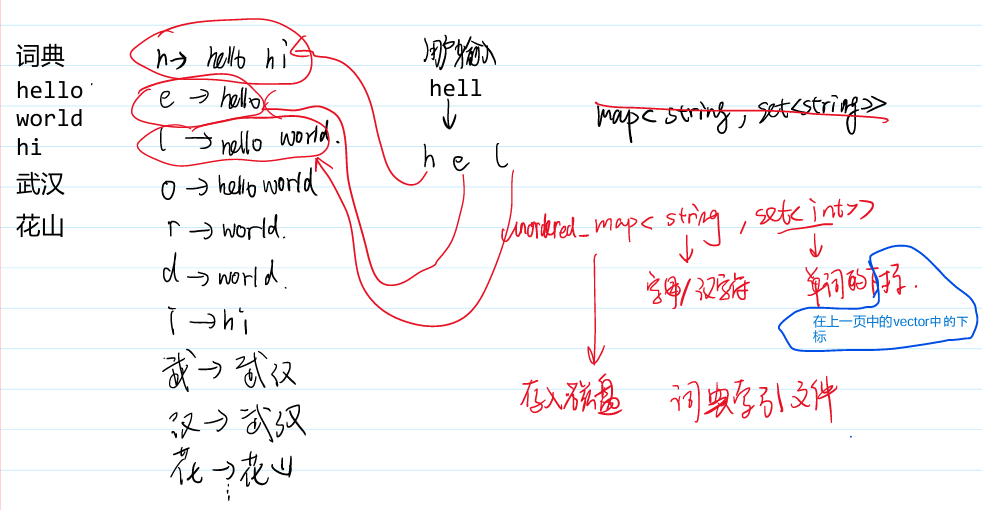 词典
hello
world
hi
武汉
花山
h→ hello hi
e → hello
l → hello world.
o → hello world
r → world.
d → world.
i → hi
武 → 武汉
汉 → 武汉
花 → 花山
⋮
用户输入
hell
↓
h e l
map< string, set<string>>
unordered_map< string, set<int>>
字母/汉字符
单词的下标.
在上一页中的vector中的下
标
存入磁盘 词典索引文件